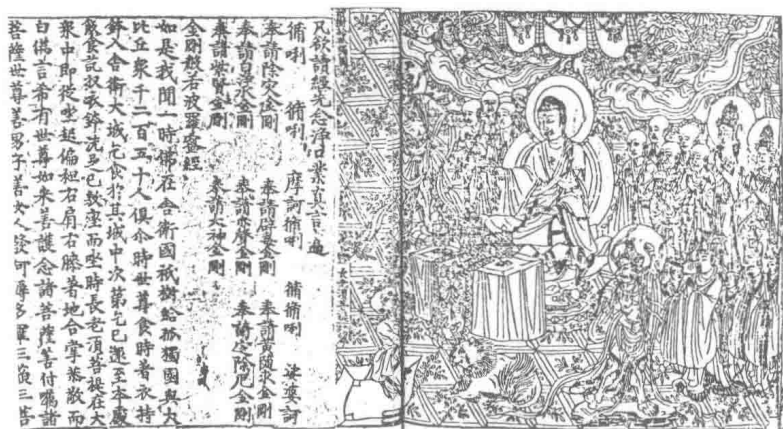 凡欲讀經先念淨口業真言遍
脩唎 脩唎 摩訶脩唎 脩脩唎 娑婆訶
奉請除灾金剛 奉請辟毒金剛 奉請黃隨求金剛
奉請白淨水金剛 奉請赤聲金剛 奉請定除厄金剛
奉請紫賢金剛 奉請大神金剛
金剛般若波羅蜜經
如是我聞一時佛在舍衛國祇樹給孤獨園與大
比丘衆千二百五十人俱尒時世尊食時著衣持
鉢入舍衛大城乞食於其城中次第乞已還至本處
飯食訖収衣鉢洗足已敷座而坐時長老須菩提在大
衆中即從坐起偏袒右肩右膝著地合掌恭敬而
白佛言希有世尊如来善護念諸菩薩善付囑諸
菩薩世尊善男子善女人發阿耨多羅三藐三菩